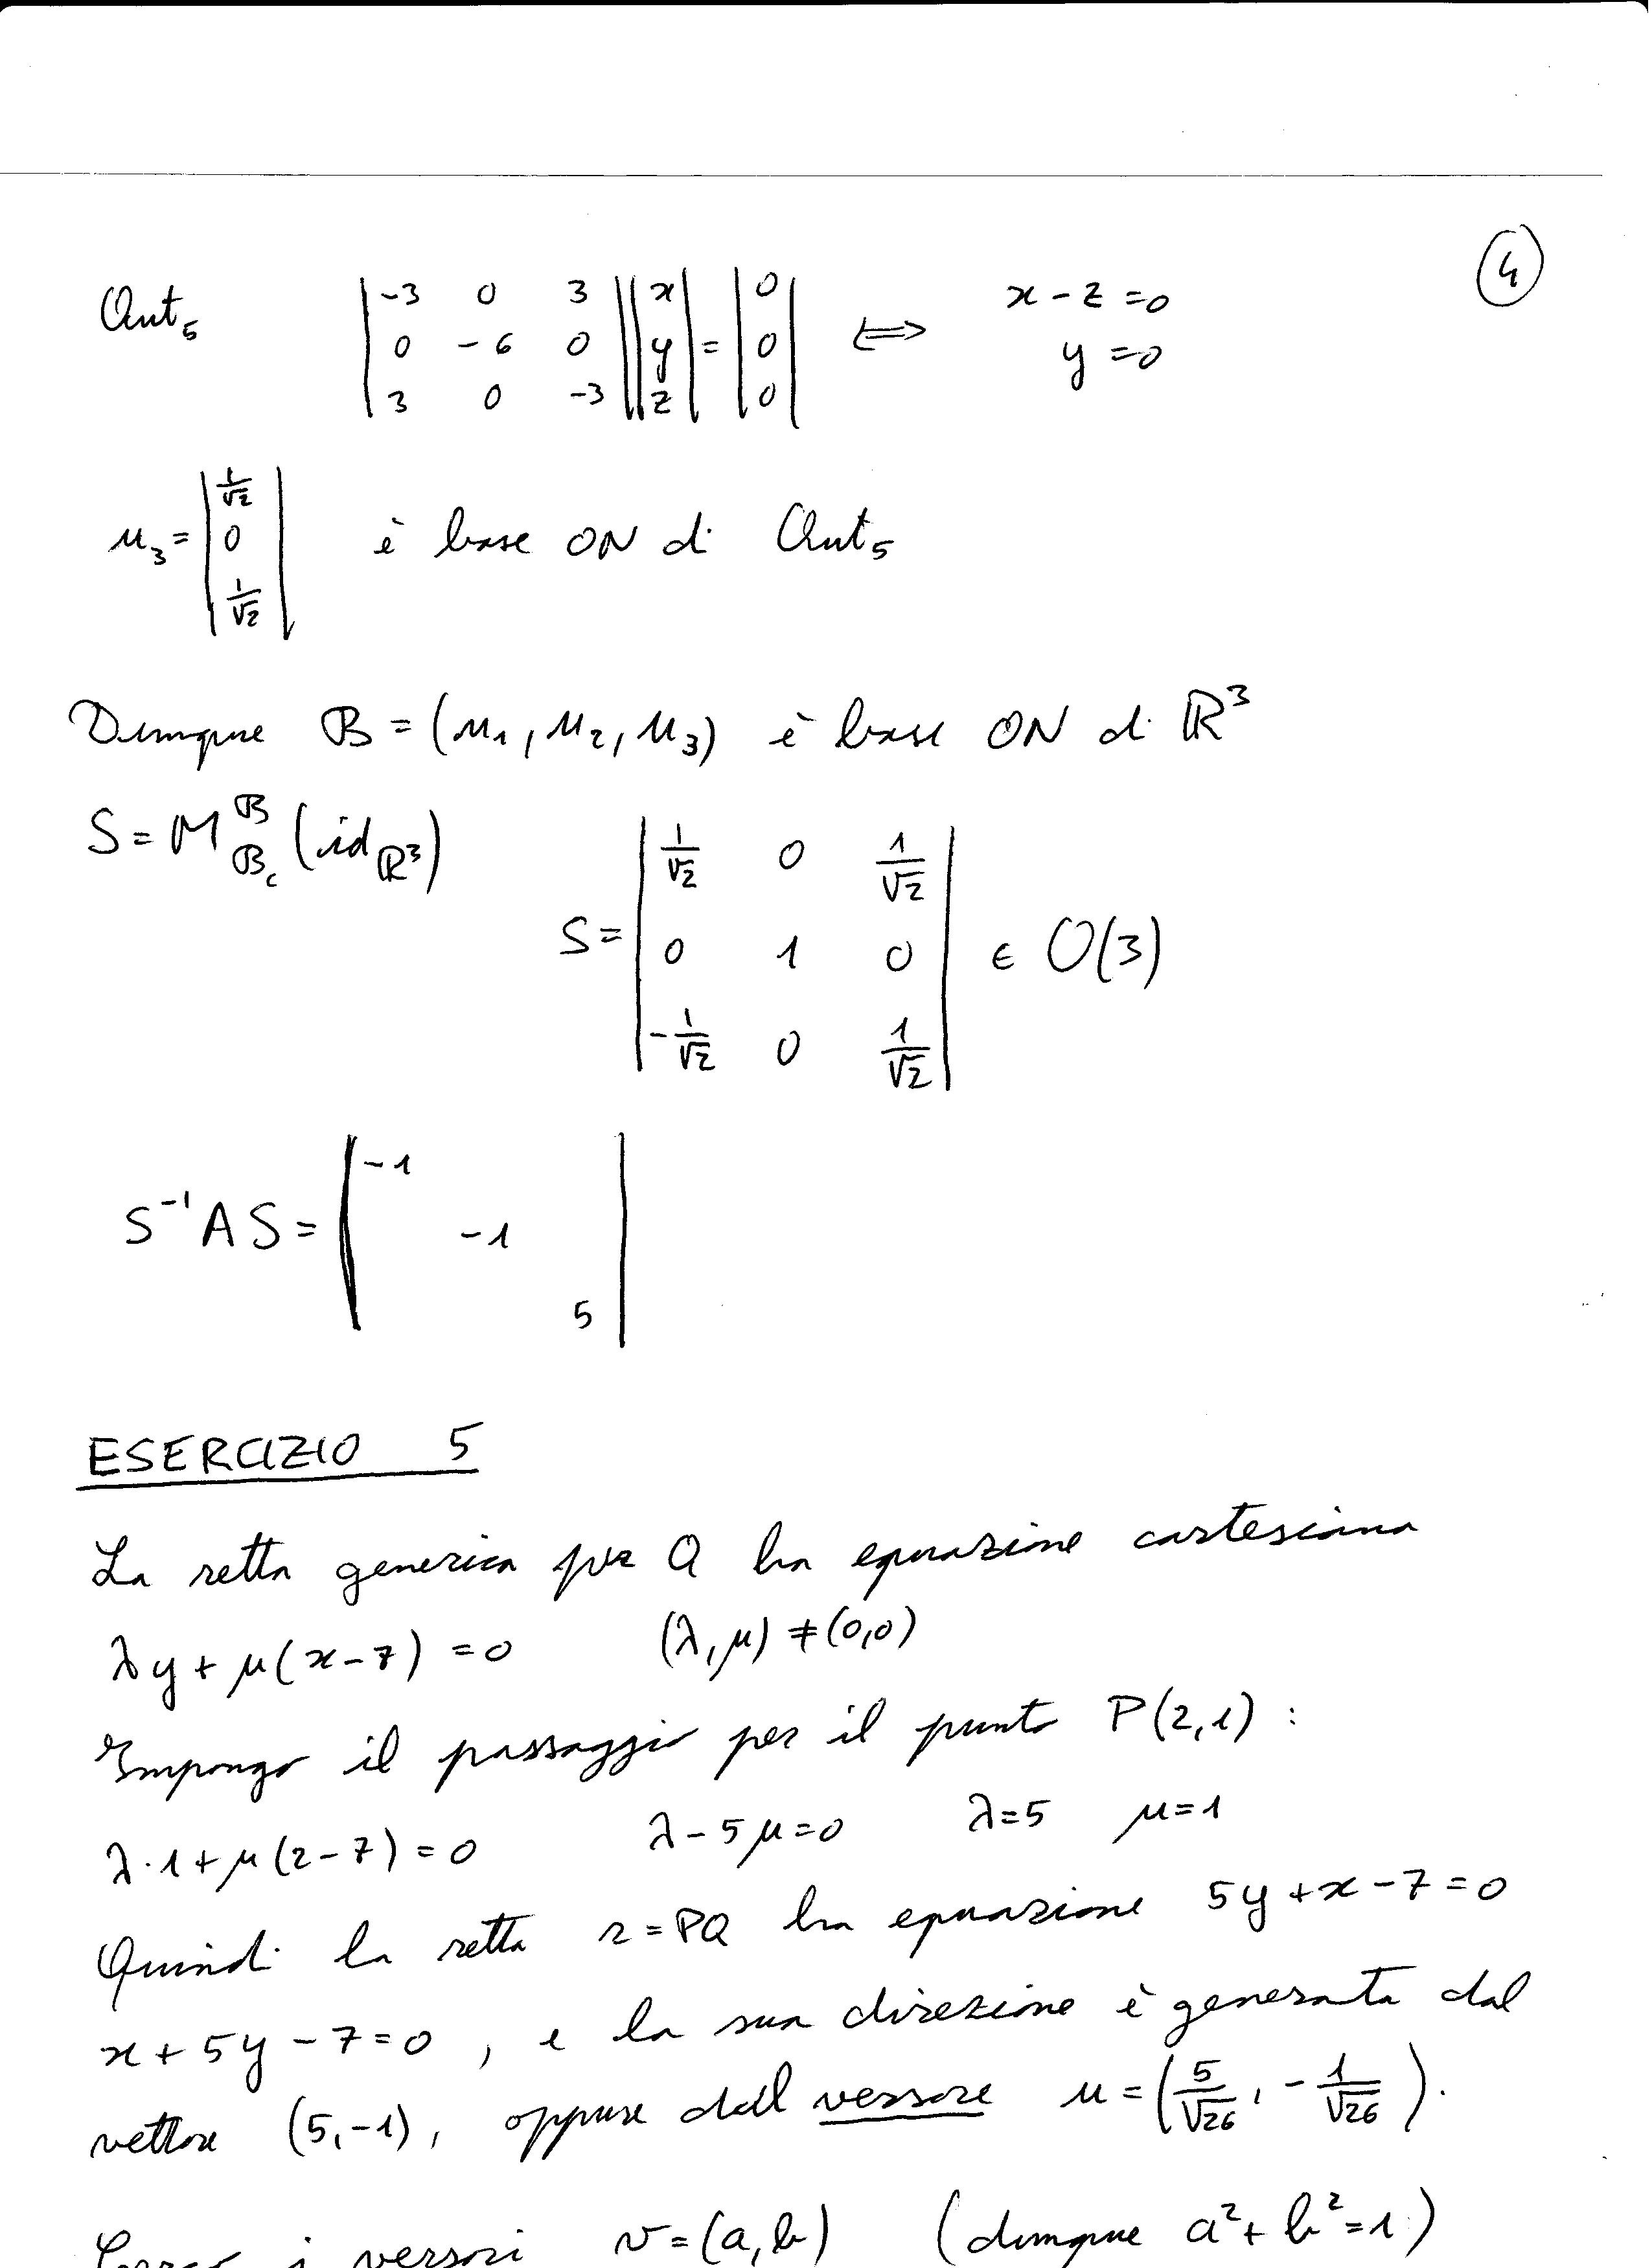 ④
Aut₅ |-3 0 3; 0 -6 0; 3 0 -3| |x; y; z| = |0; 0; 0| ⟺ x - z = 0
y = 0
u₃ = |1/√2; 0; 1/√2| è base ON di Aut₅
Dunque B = (u₁, u₂, u₃) è base ON di ℝ³
S = M^B_{B_c} (id_{ℝ³})
S = |1/√2 0 1/√2; 0 1 0; -1/√2 0 1/√2| ∈ O(3)
S⁻¹AS = |-1; -1; 5|
ESERCIZIO 5
La retta generica per Q ha equazione cartesiana
λy + μ(x-7) = 0 (λ, μ) ≠ (0,0)
Impongo il passaggio per il punto P(2,1) :
λ·1 + μ(2-7) = 0 λ - 5μ = 0 λ=5 μ=1
Quindi la retta r = PQ ha equazione 5y + x - 7 = 0
x + 5y - 7 = 0 , e la sua direzione è generata dal
vettore (5,-1), oppure dal versore u = (5/√26, -1/√26).
Cerco i versori v = (a,b) (dunque a² + b² = 1)